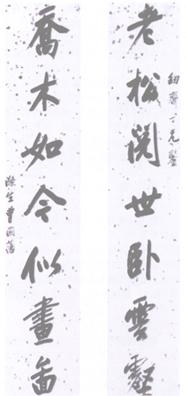 老松閱世卧雲壑
喬木如今似畫啚
滌生曾國藩